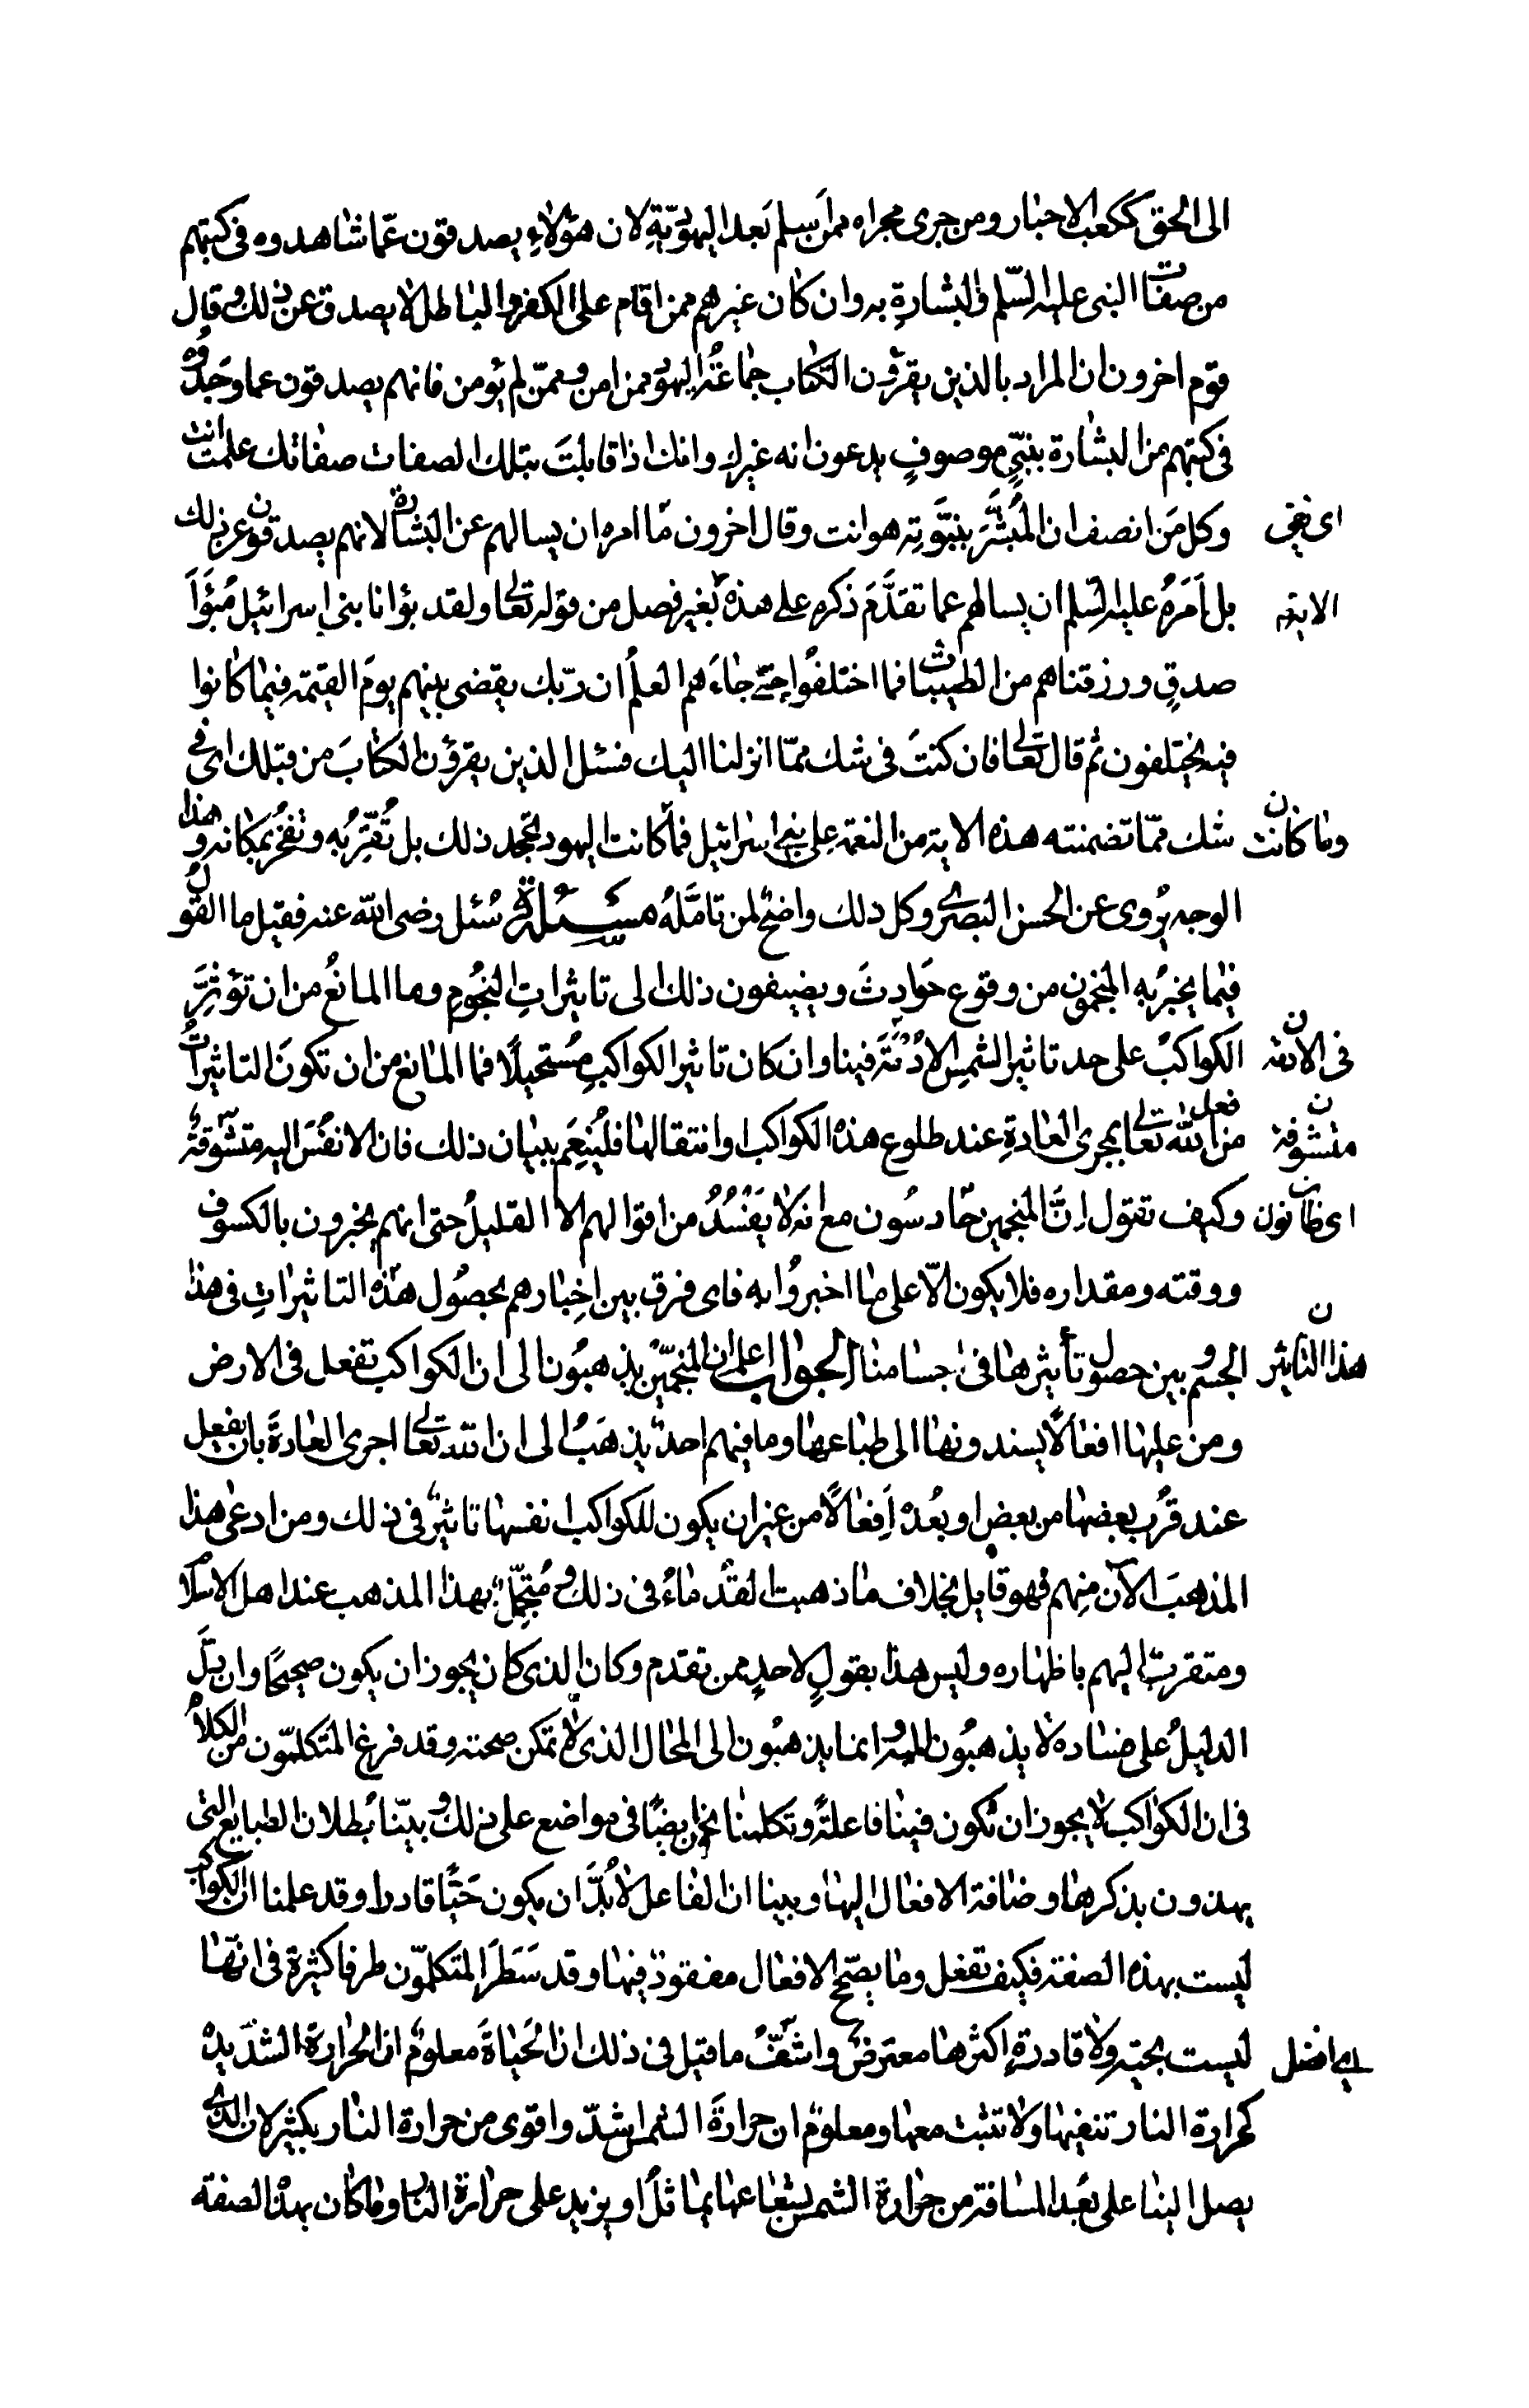 الى الحق ككعب الاحبار ومن جرى مجراه ممن اسلم بعد اليهوديّة لان هؤلاء يصدقون عمّا شاهدوه فى كتبهم
من صفات النبى عليه السّلم والبشارة به وان كان غيرهم ممن اقام على الكفر والباطل لا يصدق عن ذلك وقال
قوم اخرون ان المراد بالذين يقرؤن الكتاب جماعةُ اليهود ممن امن وممّن لم يؤمن فانهم يصدقون عما وجدُوه
فى كتبهم من البشارة بنبىٍّ موصوفٍ يدعون انه غيرك وانك اذا قابلتَ بتلك الصفات صفاتك علمت انت
وكل مَن انصف ان المُبشَّرَ بنبوّته هو انت وقال اخرون ما امره ان يسالهم عن البشارة لانهم يصدقون عن ذلك
اى نفى
بل اَمَرهُ عليه السّلم ان يسالهم عما تقدَّمَ ذكره على هذه بغير فصل من قوله تعالى ولقد بؤانا بنى اسرائيل مُبَؤَّاَ
الاية
صدقٍ ورزقناهم من الطيبات فما اختلفوا حتّى جاءَهم العلمُ ان ربّك يقضى بينهم يومَ القيمة فيما كانوا
فيه يختلفون ثم قال تعالى فان كنتَ فى شك ممّا انزلنا اليك فسئل الذين يقرؤن الكتابَ من قبلك اى فى
شك ممّا تضمنته هذه الاية من النعمة على بنى اسرائيل فما كانت اليهود تجحد ذلك بل تُقِرُّ به وتفخرُ بمكانه وهذا
وما كانت ن
الوجه يُروى عن الحسن البصرى وكل ذلك واضحٌ لمن تامَّلهُ مسئلة سُئل رضى الله عنه فقيل ما القول
فيما يخبرُ به المنجمون من وقوع حَوادِثَ ويضيفون ذلك الى تاثيراتِ النجُوم وما المانعُ من ان تؤثِّرَ
الكواكبُ على حد تاثير الشمسِ الادُمَةَ فينا وان كان تاثير الكواكبِ مستحيلًا فما المانع من ان تكونَ التاثيراتُ
فى الادمة ن
من فعل الله تعالى بمجرى العادةِ عند طلوع هذه الكواكب او انتقالها فليُنعِم ببيان ذلك فان الانفُسَ اليه متشوّقةٌ
متشوفة ن
وكيف تقول اِنَّ المنجمين حادسُون مع انه لا يَفْسُدُ من اقوالهم الا القليلُ حتى انهم يخبرون بالكسوف
اى ظانون
ووقته ومقداره فلا يكون الّا على ما اخبروُا به فاى فرق بين اِخبارهم بحصُول هذه التاثيراتِ فى هذا
الجسم وبين حصول تأثيرها فى اجسامنا الجواب اعلم ان المنجمّين يذهبُون الى ان الكواكب تفعل فى الارض
هذا التاثير ن
ومن عليها افعالًا يسندونها الى طباعها وما فيهم احدٌ يذهَبُ الى ان الله تعالى اجرى العادةَ بان يفعل
عند قُرب بعضها من بعض او بُعده اَفعالًا من غير ان يكون للكواكب انفسها تاثيرٌ فى ذلك ومن ادعى هذا
المذهبَ الآن مِنهم فهو قايل بخلاف ما ذهبت القدماءُ فى ذلك و مُتجمِّلٌ بهذا المذهب عند اهل الاسلام
ومتقرب اليهم باظهاره وليس هذا بقولٍ لاحدٍ ممن تقدم وكان الذى كان يجوز ان يكون صحيحًا وان دلَّ
الدليلُ على فساده لا يذهبُون اليه وانما يذهبُون الى المحال الذى لا تمكن صحته وقد فرغ المتكلمّون من الكلام
فى ان الكواكب لا يجوز ان تكون فينا فاعلةً وتكلمنا نحن ايضًا فى مواضع على ذلك و بيّنا بُطلان الطبايع التى
يهذون بذكرها واضافة الافعال اليها وبينا ان الفاعل لا بُدَّ ان يكون حَيًّا قادرا وقد علمنا ان الكواكب
ليست بهذه الصفة فكيف تفعل وما يصحّح الافعال مفقودٌ فيها وقد سَطَرَ المتكلمّون طرفا كثيرة فى انّها
ليست بحيّة ولا قادرةٍ اكثرها معترضٌ واشَفُّ ما قيل فى ذلك ان الحَياةَ معلومٌ ان الحرارة الشّديدة
اى افضل
كحرارة النار تنفيها ولا تثبت معها ومعلومٌ ان حرارةَ الشمس اشدّ واقوى من حرارة النار بكثير لان الذى
يصل الينا على بُعد المسافة من حرارة الشمس بشعاعها يماثلُ او يزيد على حرارة النار وما كان بهذه الصفة